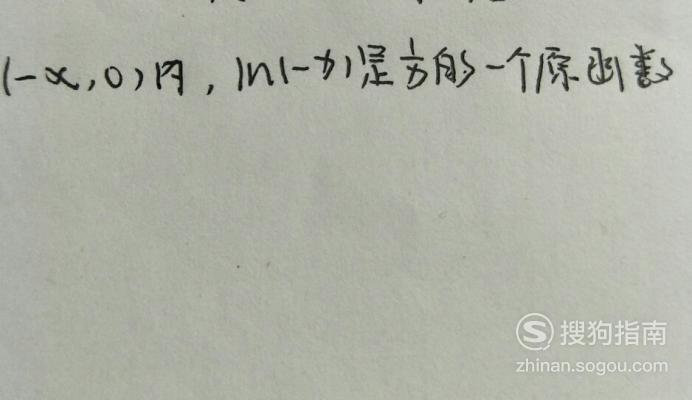 (-∞,0)内，ln(-x)是1/x的一个原函数
搜狗指南
zhinan.sogou.com